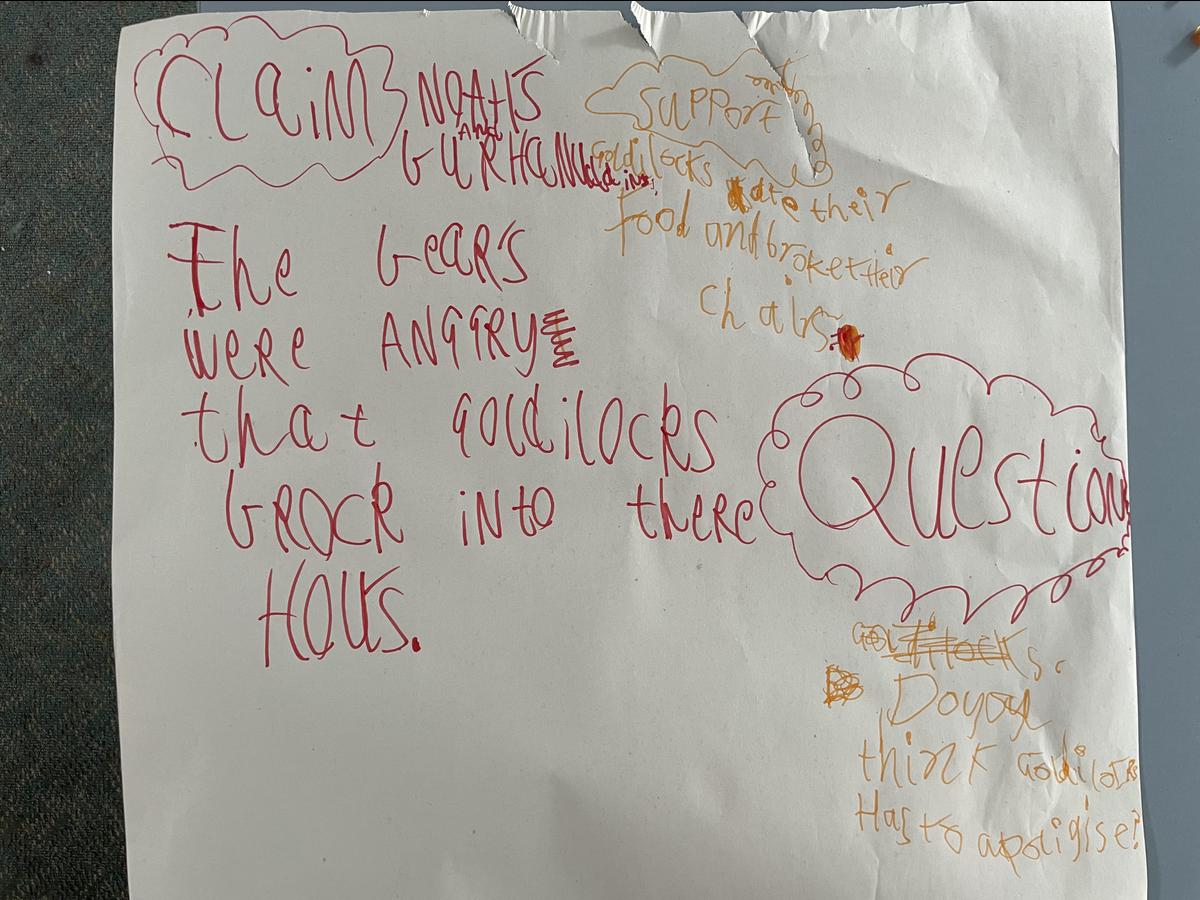 CLaiM
NOAH'S
AND
GURHAN
The bears
were ANGGRY
that goldilocks
brock into there
Hous.
support
Goldilocks ate their
food and broke their
chairs.
Question
Do you
think Goldilocks
Has to apoligise?